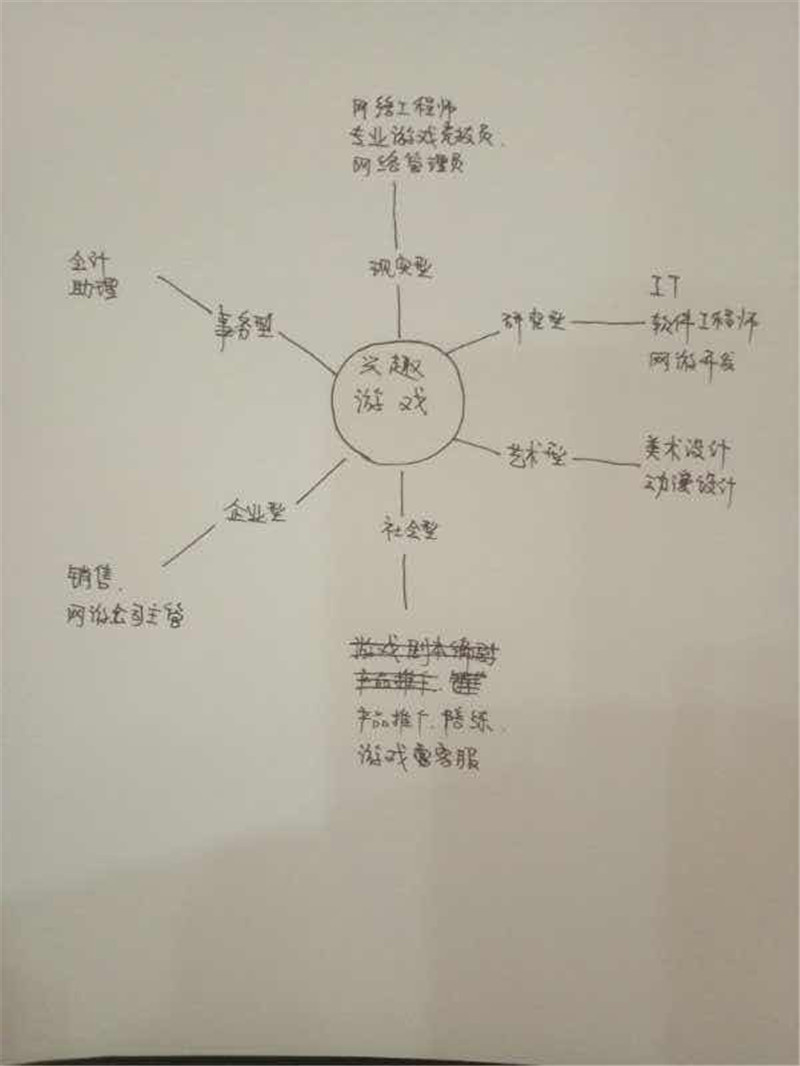 网络工程师
专业游戏竞技员、
网络管理员
现实型
会计
助理
事务型
研究型
IT
软件工程师
网游开发
兴趣
游戏
艺术型
美术设计
动漫设计
企业型
销售、
网游公司主管
社会型
游戏剧本编剧
产品推广、销售
产品推广、陪练、
游戏客服